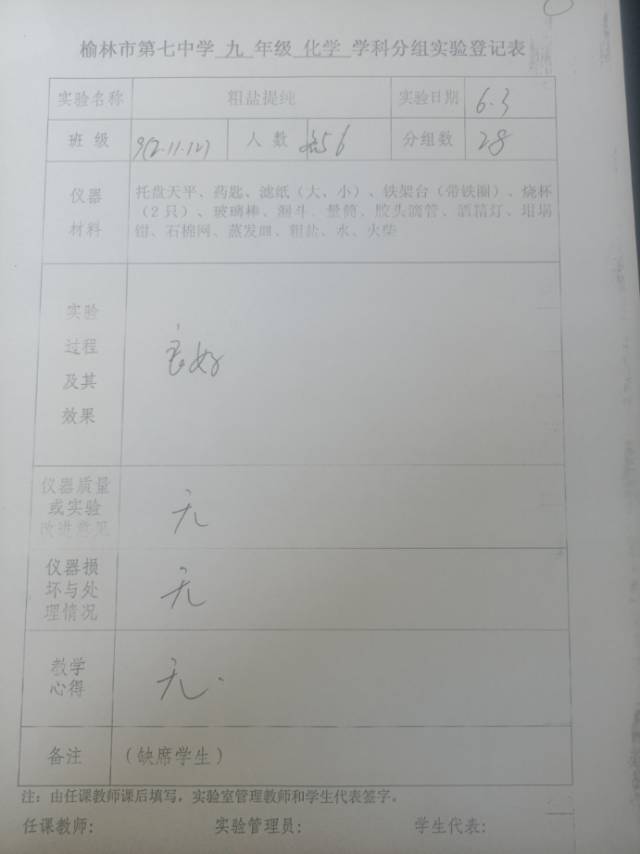 榆林市第七中学 九 年级 化学 学科分组实验登记表
实验名称 粗盐提纯 实验日期 6.3
班 级 9(2.11.12) 人 数 56 分组数 28
仪器
材料
托盘天平、药匙、滤纸（大、小）、铁架台（带铁圈）、烧杯
（2只）、玻璃棒、漏斗、量筒、胶头滴管、酒精灯、坩埚
钳、石棉网、蒸发皿、粗盐、水、火柴
实验
过程
及其
效果
良好
仪器质量
或实验
改进意见
无
仪器损
坏与处
理情况
无
教学
心得
无.
备注 （缺席学生）
注：由任课教师课后填写，实验室管理教师和学生代表签字。
任课教师: 实验管理员: 学生代表: